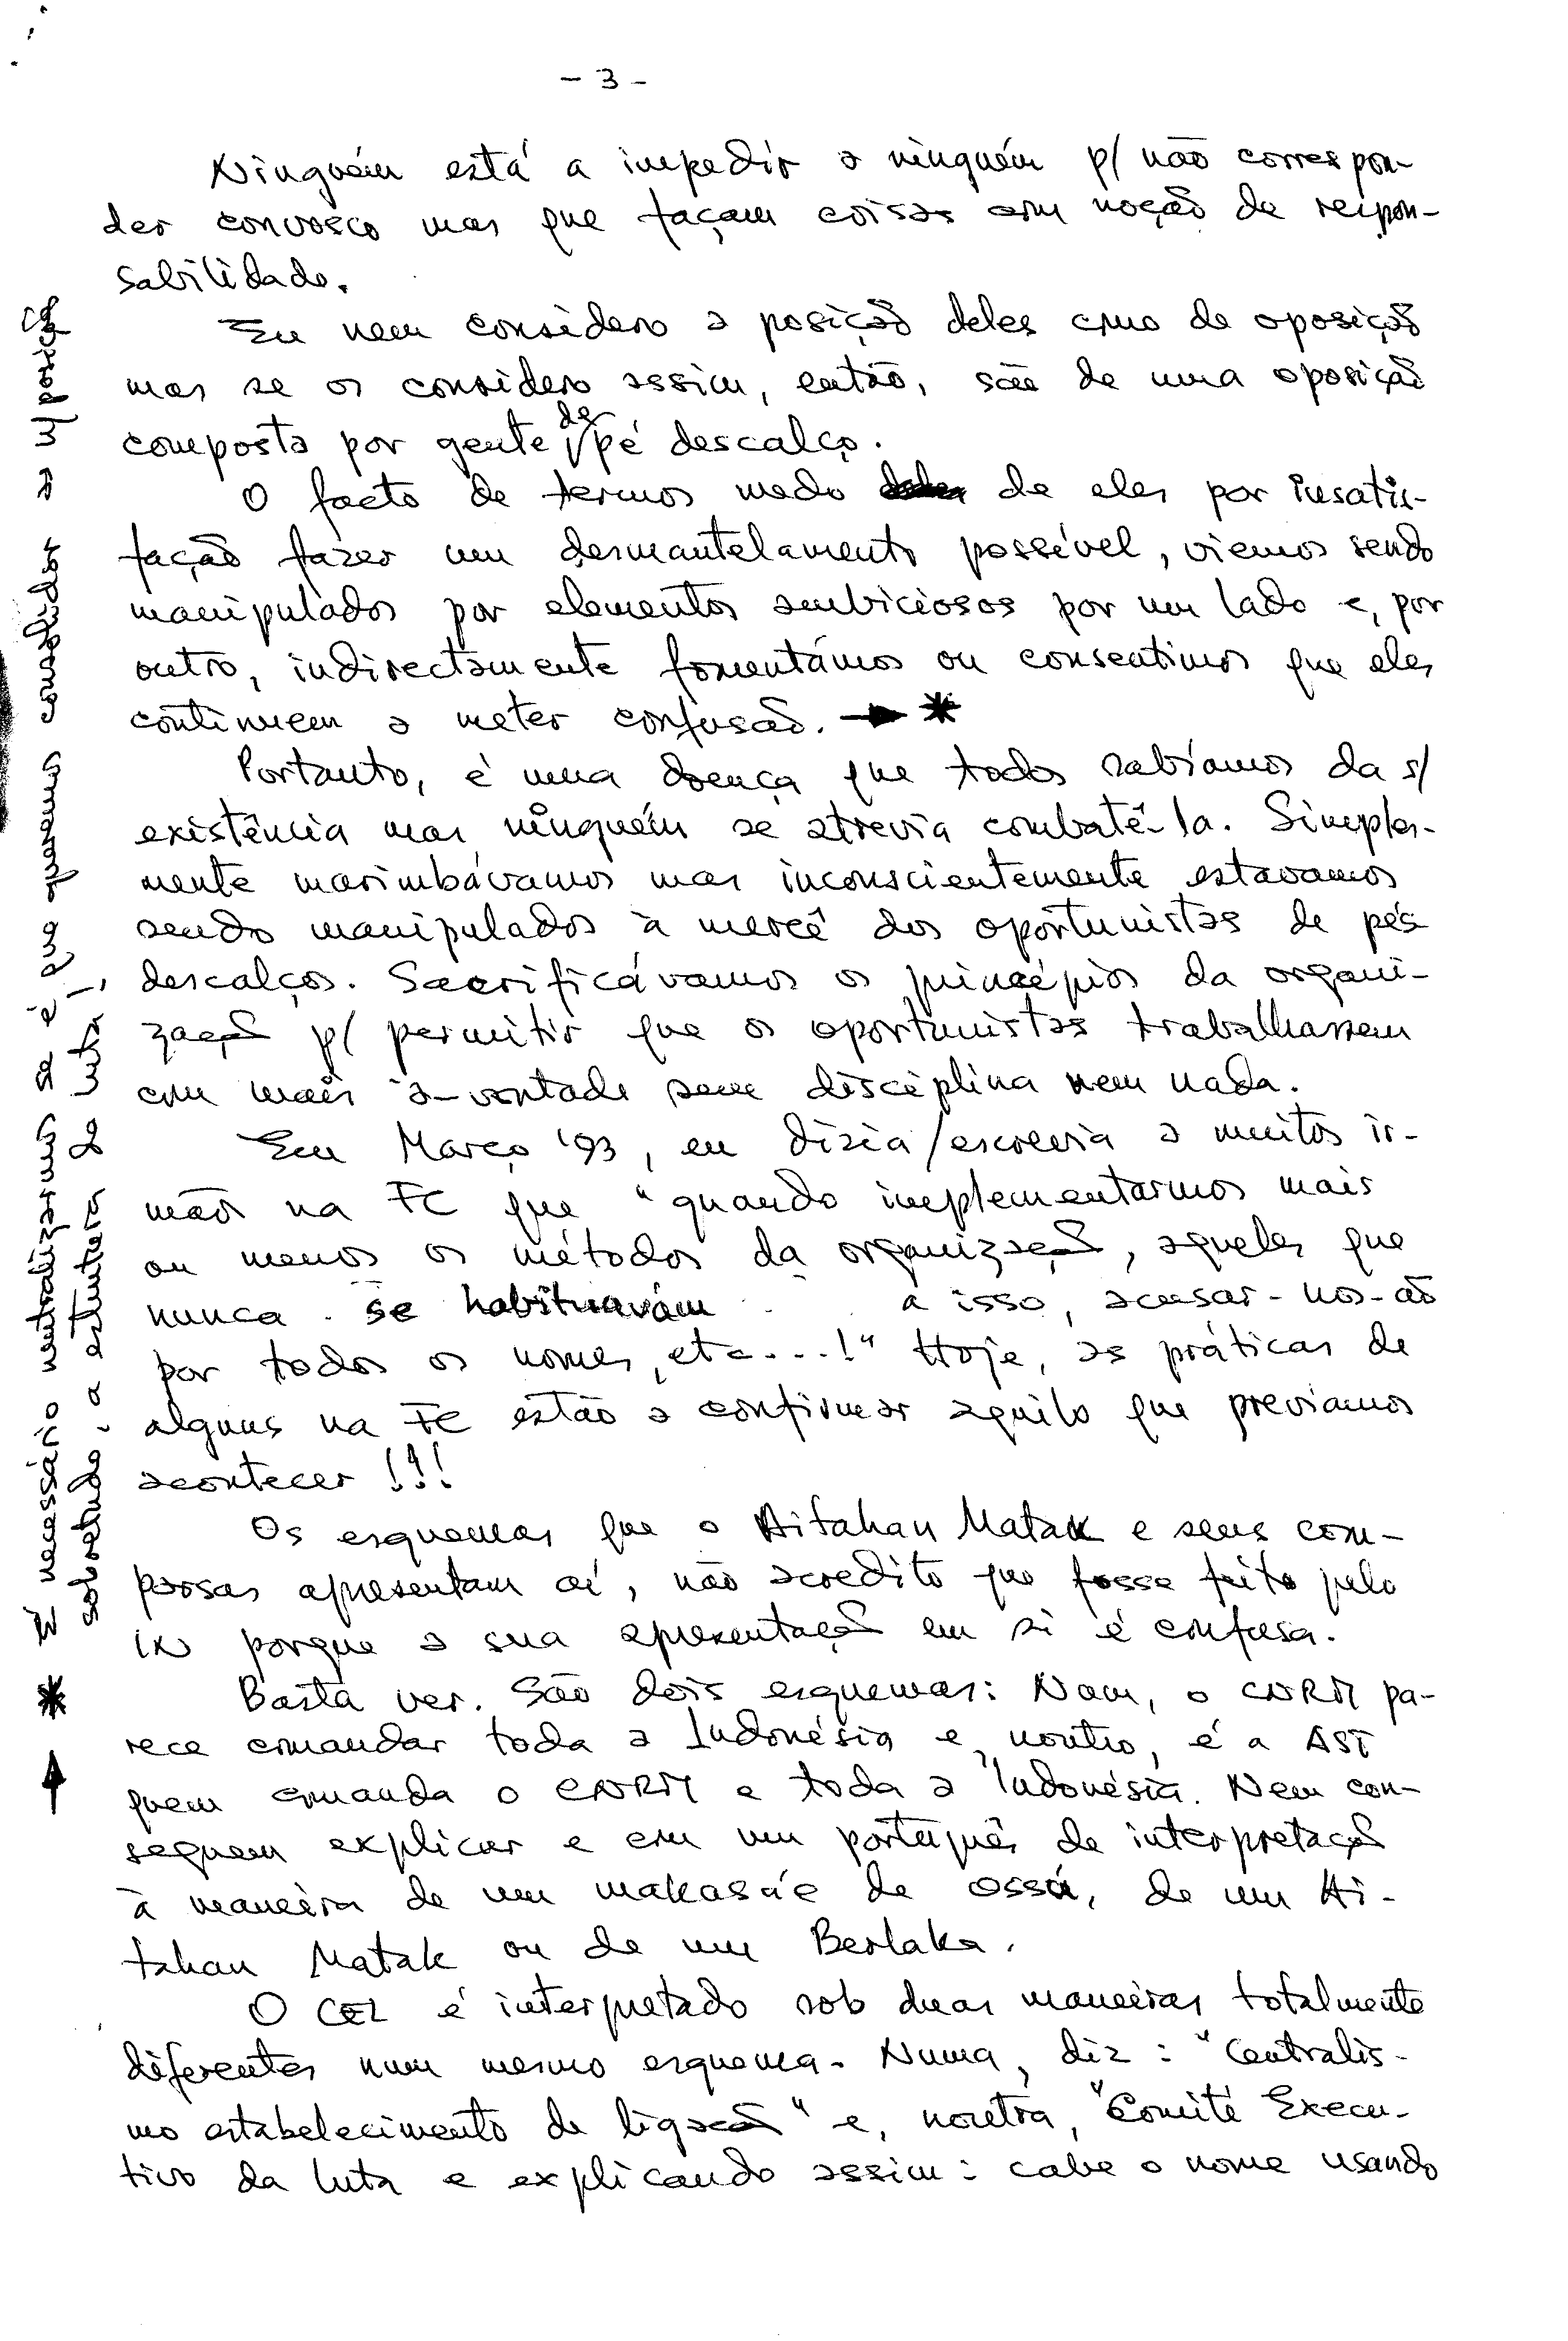 - 3 -
Ninguém está a impedir a ninguém p/ não correspon-
der convosco mas que façam coisas com noção de respon-
sabilidade.
Eu nem considero a posição deles como de oposição
mas se os considero assim, então, são de uma oposição
composta por gente de pé descalço.
O facto de termos medo de eles por insatis-
fação fazer um desmantelamento possível, viemos sendo
manipulados por elementos ambiciosos por um lado e, por
outro, indirectamente fomentámos ou consentimos que eles
continuem a meter confusão. → *
Portanto, é uma doença que todos sabíamos da s/
existência mas ninguém se atrevia combatê-la. Simples-
mente marimbávamos mas inconscientemente estavamos
sendo manipulados à mercê dos oportunistas de pés
descalços. Sacrificávamos os princípios da organi-
zação p/ permitir que os oportunistas trabalhassem
com mais à-vontade sem disciplina nem nada.
Em Março '93, eu dizia/escrevia a muitos ir-
mãos na FC que "quando implementarmos mais
ou menos os métodos da organização, aqueles que
nunca se habituavam a isso, acusar-nos-ão
por todos os nomes, etc....!" Hoje, as práticas de
alguns na FC estão a confirmar aquilo que prevíamos
acontecer !!!
Os esquemas que o Aitahan Matak e seus com-
parsas apresentam aí, não acredito que fosse feito pelo
IN porque a sua apresentação em si é confusa.
Basta ver. São dois esquemas: Num, o CNRM pa-
rece comandar toda a Indonésia e, noutro, é a AST
quem comanda o CNRM e toda a Indonésia. Nem con-
seguem explicar e em um português de interpretação
à maneira de um makasá'e de Ossú, de um Ai-
tahan Matak ou de um Berlaka.
O CEL é interpretado sob duas maneiras totalmente
diferentes num mesmo esquema. Numa, diz: "Centralis-
mo estabelecimento de ligação" e, noutra, "Comité Execu-
tivo da Luta e explicando assim: cabe o nome usando
→ * É necessário neutralizarmos se é que queremos consolidar a n/posição
sobretudo, a estrutura da luta!